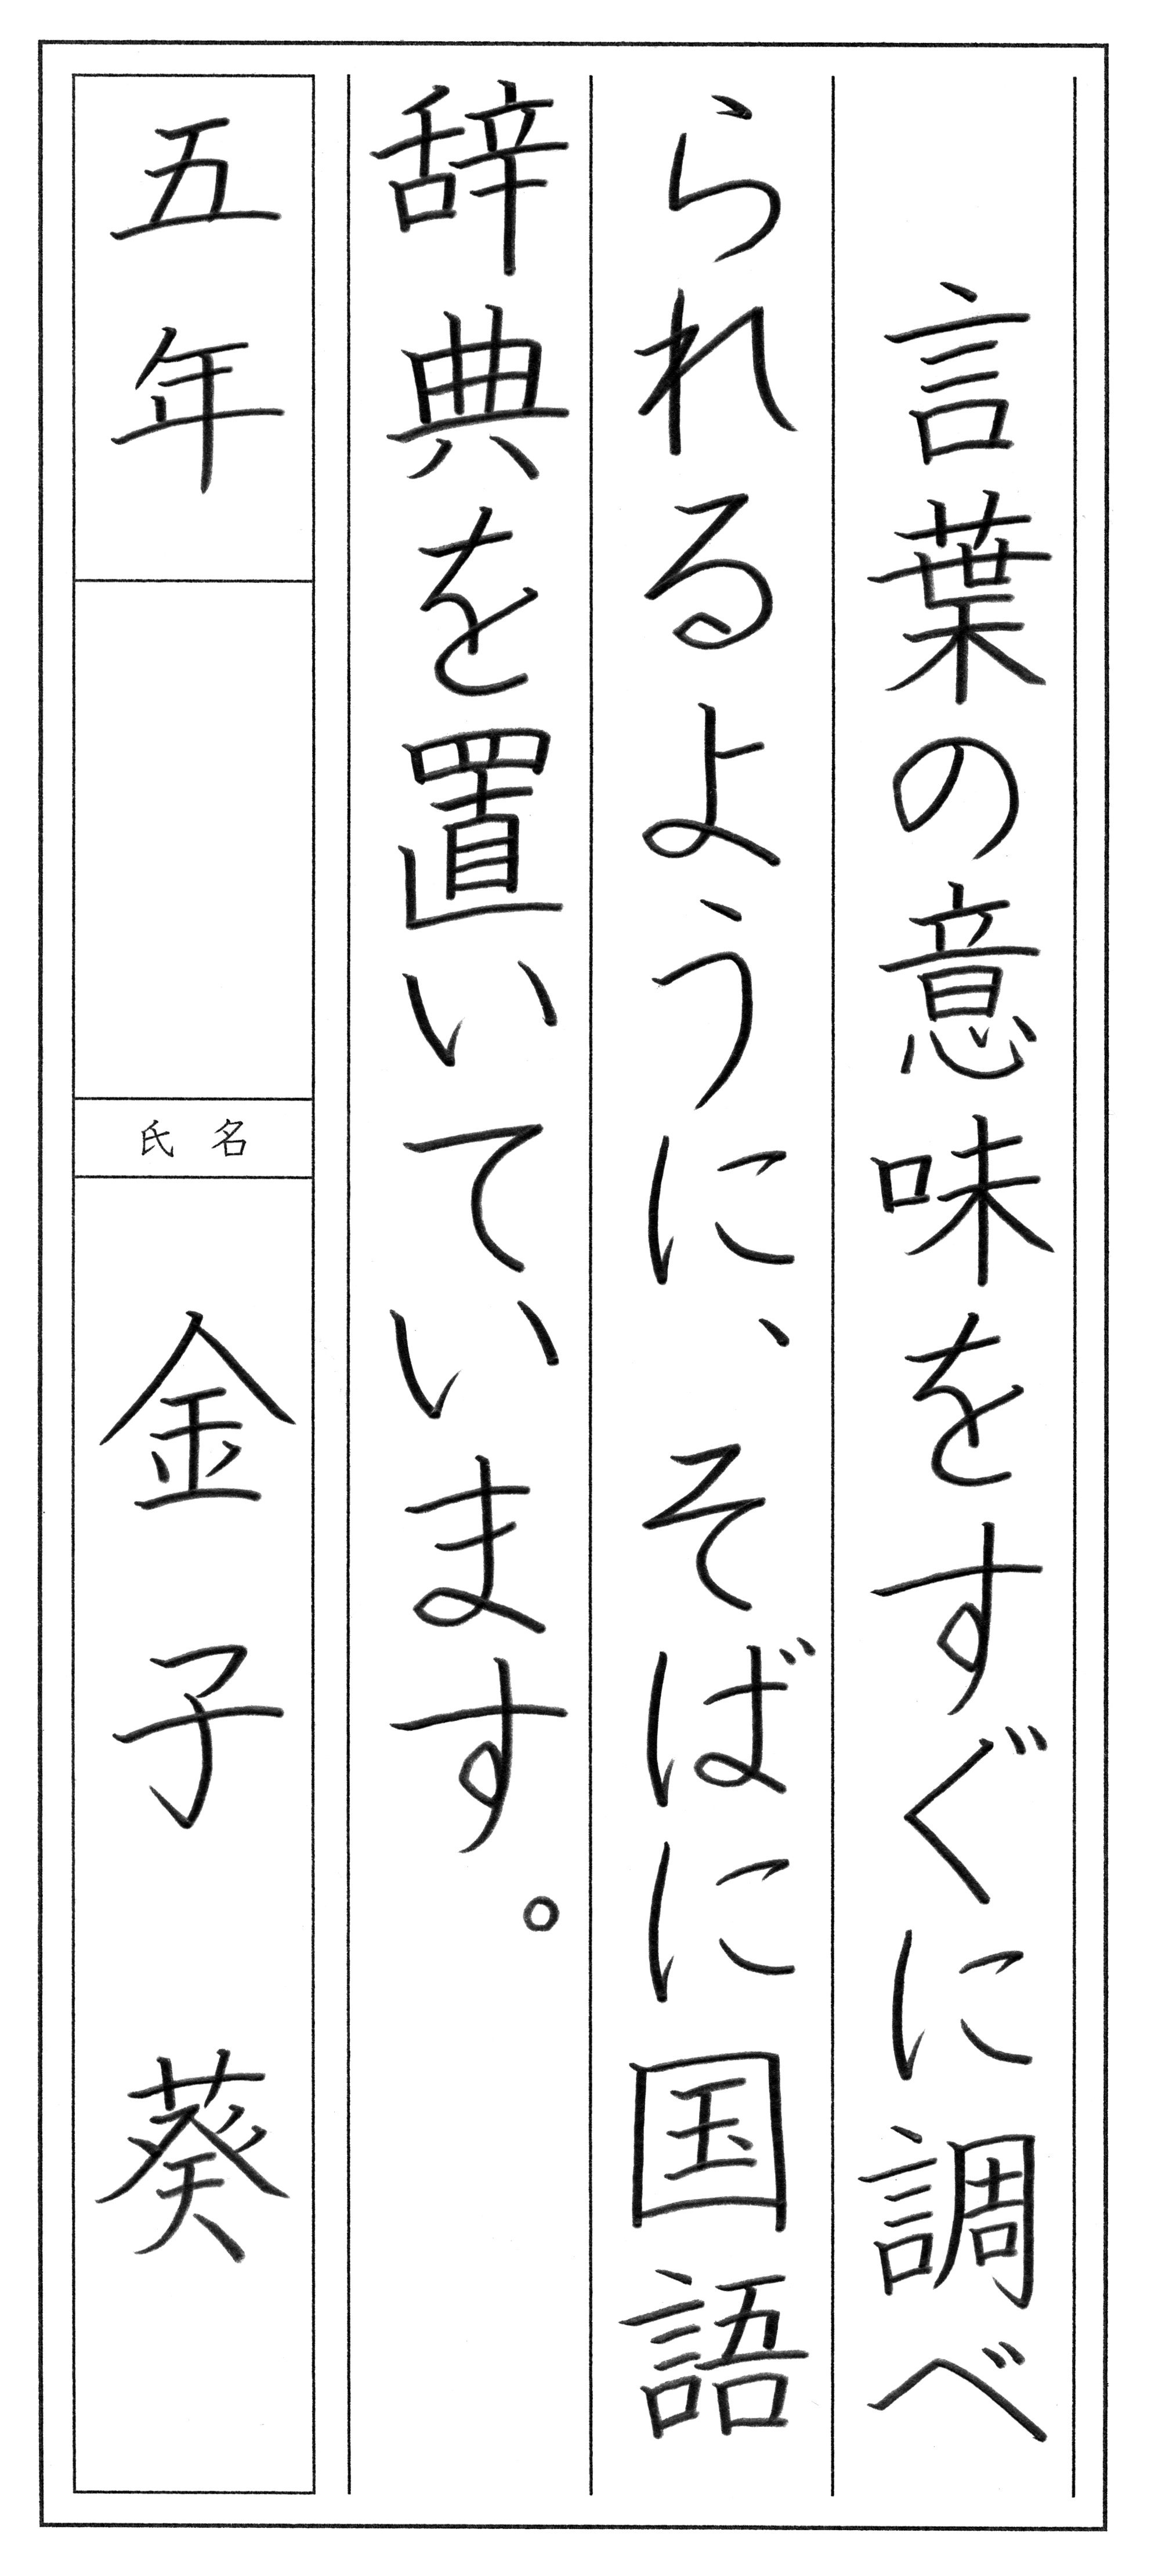 言葉の意味をすぐに調べ
られるように、そばに国語
辞典を置いています。
五年
氏名
金子葵